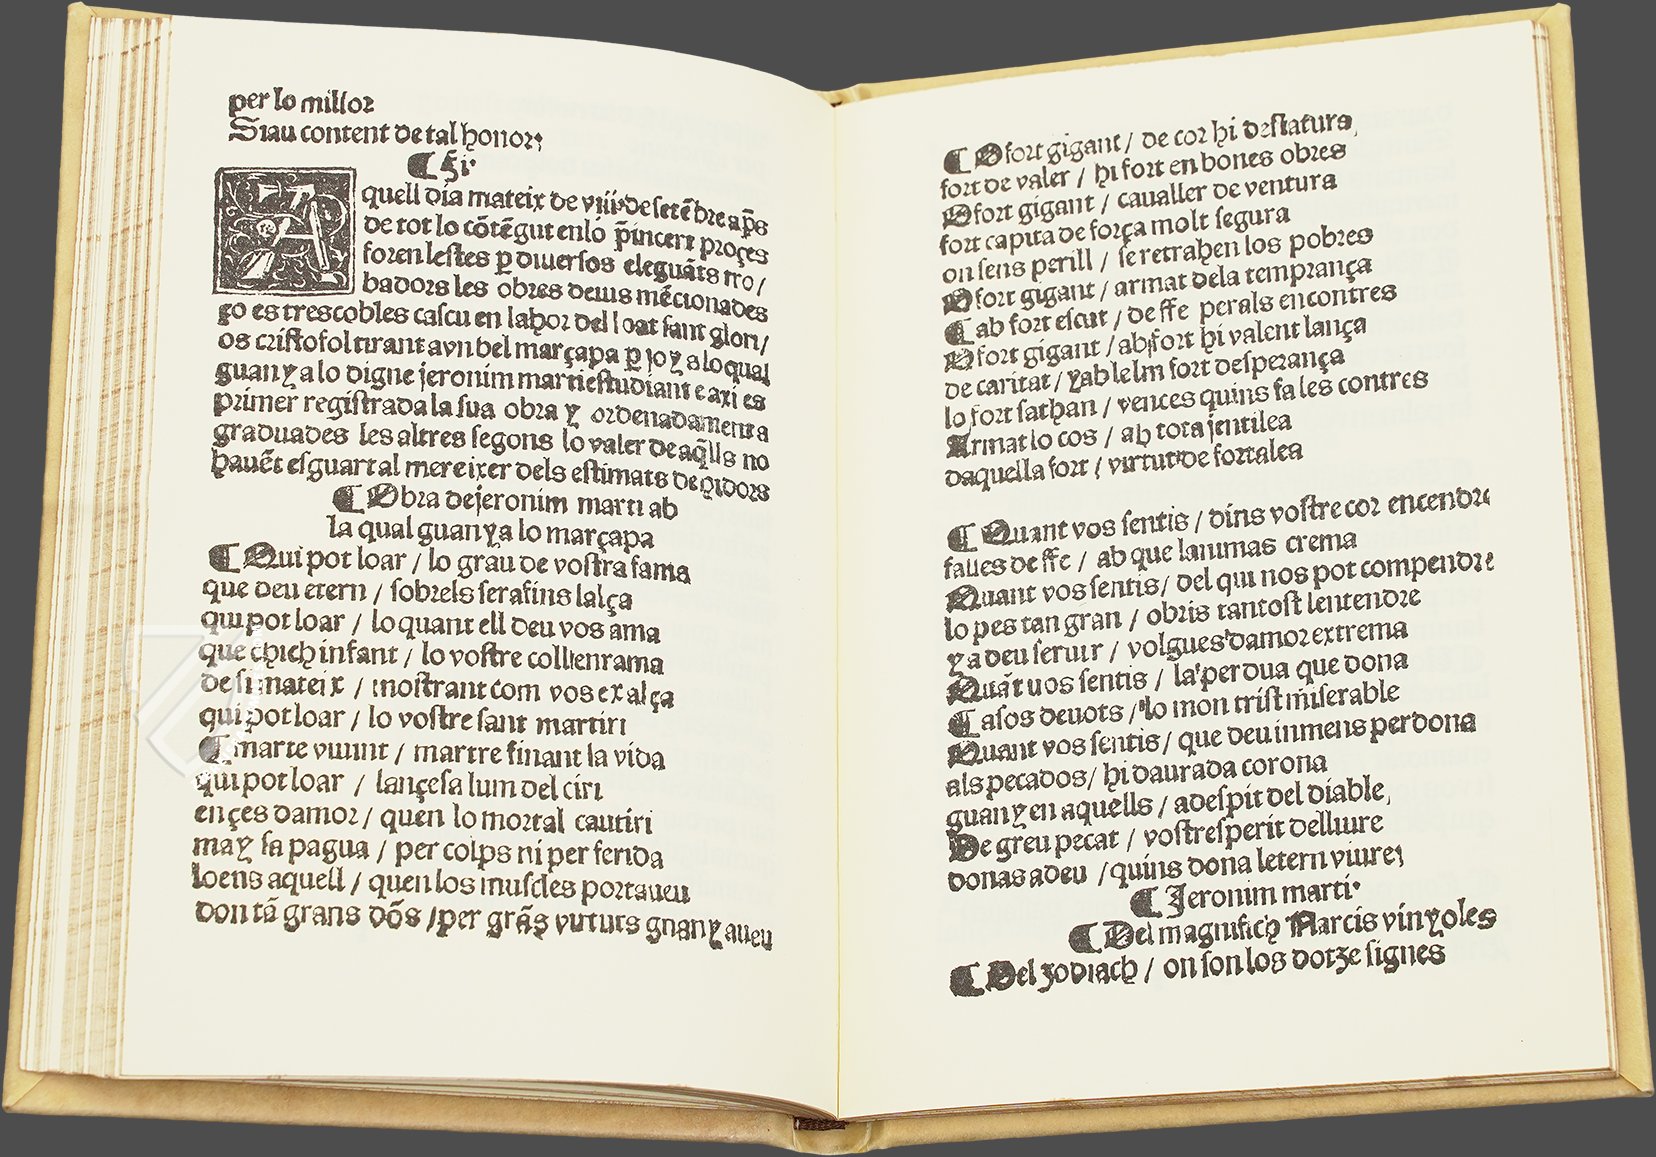 per lo millor
Siau content de tal honor;
¶ Fi·
Aquell dia mateix de viii·de setẽbre ap̃s
de tot lo cõtẽgut enlo p̃incert proçes
foren lestes ꝑ diuersos eleguãts tro/
badors les obres deuis mẽcionades
ço es tres cobles cascu en lahor del loat sant glori/
os cristofol tirant a vn bel març apa ꝑ joya lo qual
guanya lo digne jeronim marti estudiant e axi es
primer registrada la sua obra y ordenadament a
graduades les altres segons lo valer de aq̃lls no
hauẽt esguart al mereixer dels estimats degidors
¶ Obra de jeronim marti ab
la qual guanya lo març apa
¶ Qui pot loar / lo grãu de vostra fama
que deu etern / sobrels serafins lalça
qui pot loar / lo quant ell deu vos ama
que chich infant / lo vostre coll enrama
de si mateix / mostrant com vos exalça
qui pot loar / lo vostre sant martiri
¶ marte viuint / martre finant la vida
qui pot loar / lançesa lum del ciri
ençes damor / quen lo mortal cautiri
may sa pagua / per colps ni per ferida
loens aquell / quen los muscles portaueu
don tã grans dõs / per grãs vuturs guanyaueu
¶ O fort gigant / de cor hi destatura,
fort de valer / hi fort en bones obres
O fort gigant / caualler de ventura
fort capita de força molt segura
on sens perill / se retrahen los pobres
O fort gigant / armat dela temprança
¶ ab fort escut / de ffe perals encontres
O fort gigant / ab fort hi valent lança
de caritat / yab lelm fort desperança
lo fort sathan / vences quins fa les contres
Armat lo cos / ab tota jentilea
daquella fort / virtut de fortalea
¶ Quant vos sentis / dins vostre cor encendre
falles de ffe / ab que lanimas crema
Quant vos sentis / del qui nos pot compendre
lo pes tan gran / obris tantost lentendre
y a deu seruir / volgues damor extrema
Quãt uos sentis / la perdua que dona
¶ Casos deuots / lo mon trist miserable
Quant vos sentis / que deu inmens perdona
als pecados / hi daurada corona
guanyen aquells / adespit del diable,
De greu pecat / vostresperit delliure
donas a deu / quins dona letern viure;
¶ Jeronim marti·
¶ Del magnifich Narcis vinyoles
¶ Del zodiach / on son los dotze signes